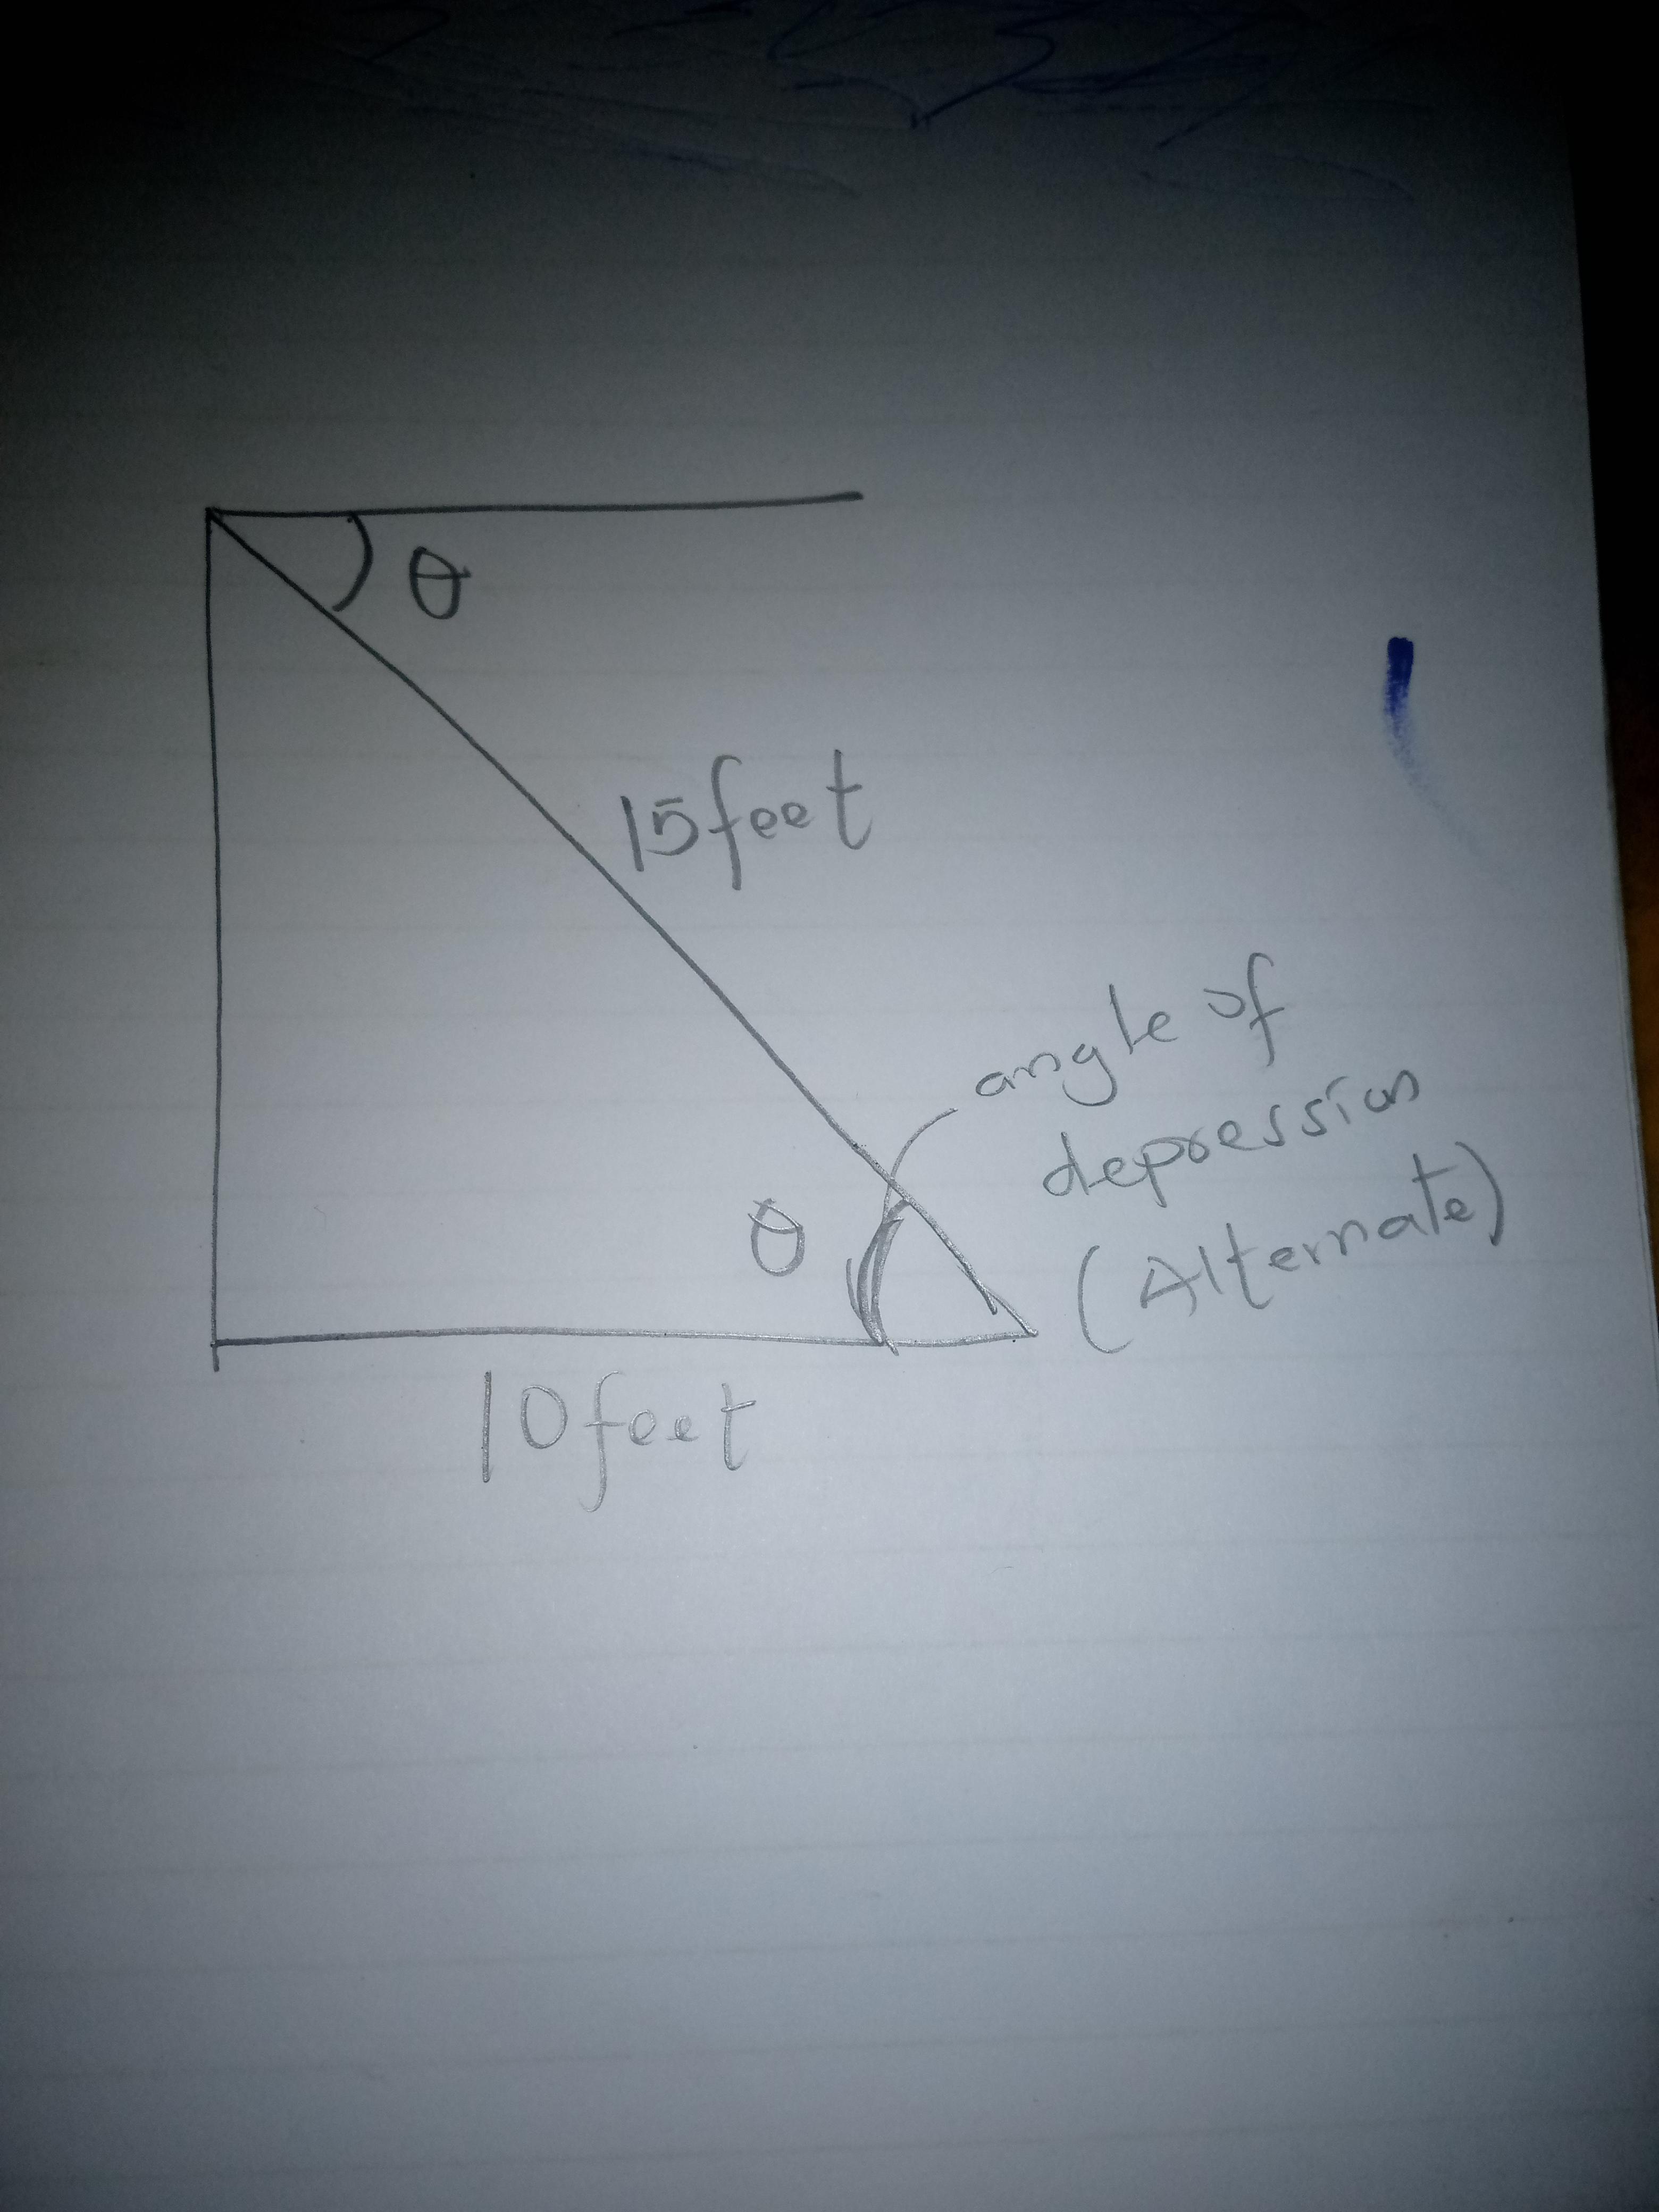 θ
15feet
angle of
depression
(Alternate)
θ
10feet